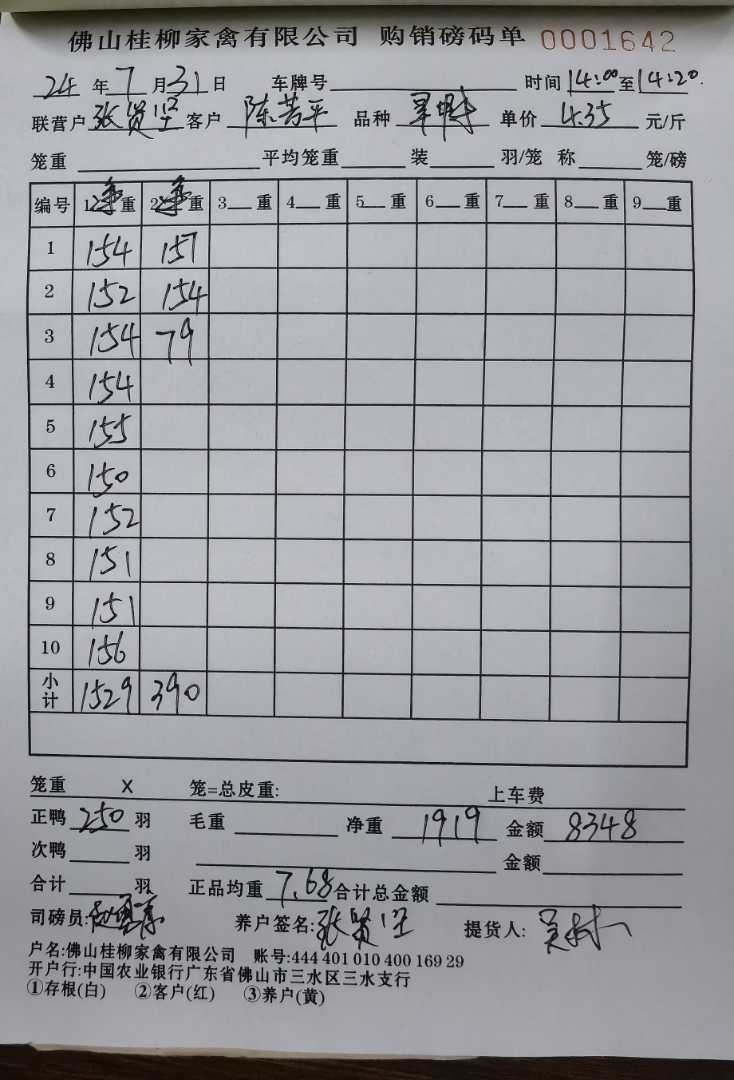 佛山桂柳家禽有限公司 购销磅码单 0001642
24 年 7 月 31 日 车牌号 时间 14:00 至 14:20.
联营户 张贤坚 客户 陈芳平 品种 单价 4.35 元/斤
笼重 平均笼重 装 羽/笼 称 笼/磅
编号 1 净 重 2 净 重 3 重 4 重 5 重 6 重 7 重 8 重 9 重
1 154 157
2 152 154
3 154 79
4 154
5 155
6 150
7 152
8 151
9 151
10 156
小计 1529 390
笼重 X 笼=总皮重: 上车费
正鸭 250 羽 毛重 净重 1919 金额 8348
次鸭 羽 金额
合计 羽 正品均重 7.68 合计总金额
司磅员: 养户签名: 张贤坚 提货人:
户名:佛山桂柳家禽有限公司 账号:444 401 010 400 169 29
开户行:中国农业银行广东省佛山市三水区三水支行
①存根(白) ②客户(红) ③养户(黄)